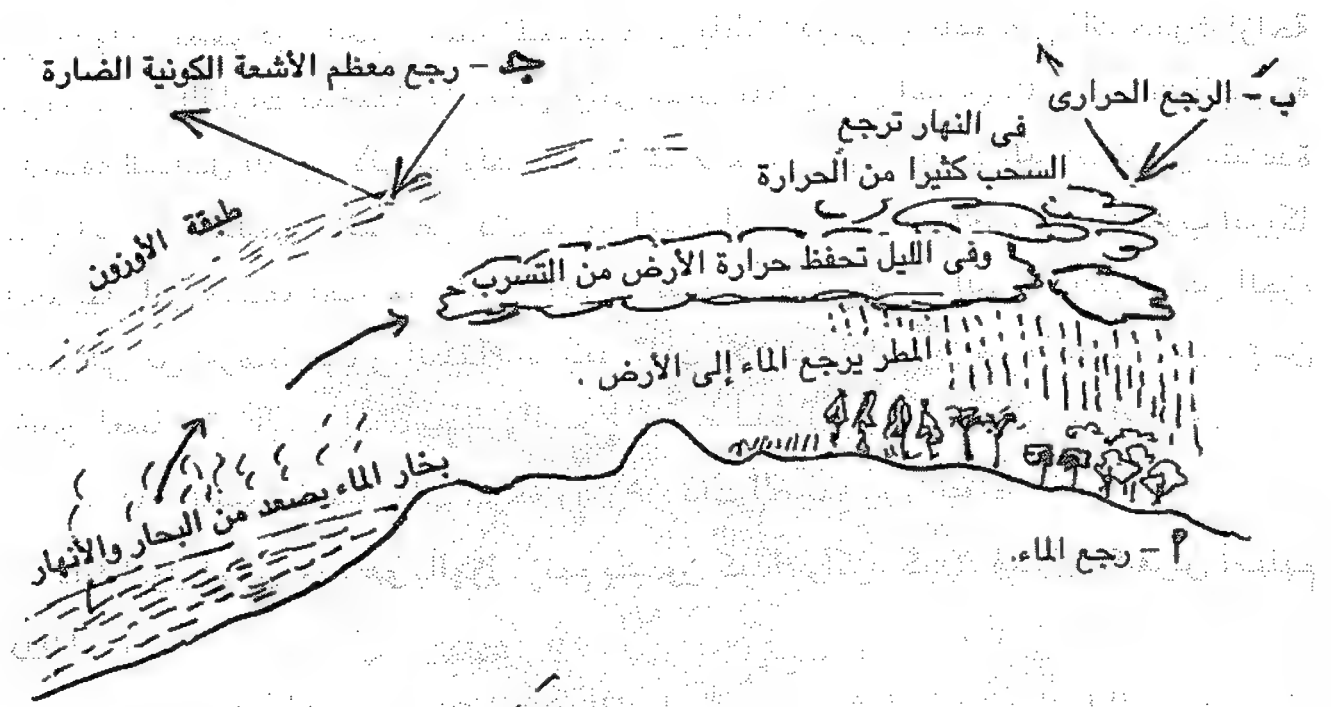 جـ - رجع معظم الأشعة الكونية الضارة
ب - الرجع الحرارى
فى النهار ترجع
السحب كثيرا من الحرارة
طبقة الأوزون
وفى الليل تحفظ حرارة الأرض من التسرب
المطر يرجع الماء إلى الأرض .
بخار الماء يصعد من البحار والأنهار
أ - رجع الماء.